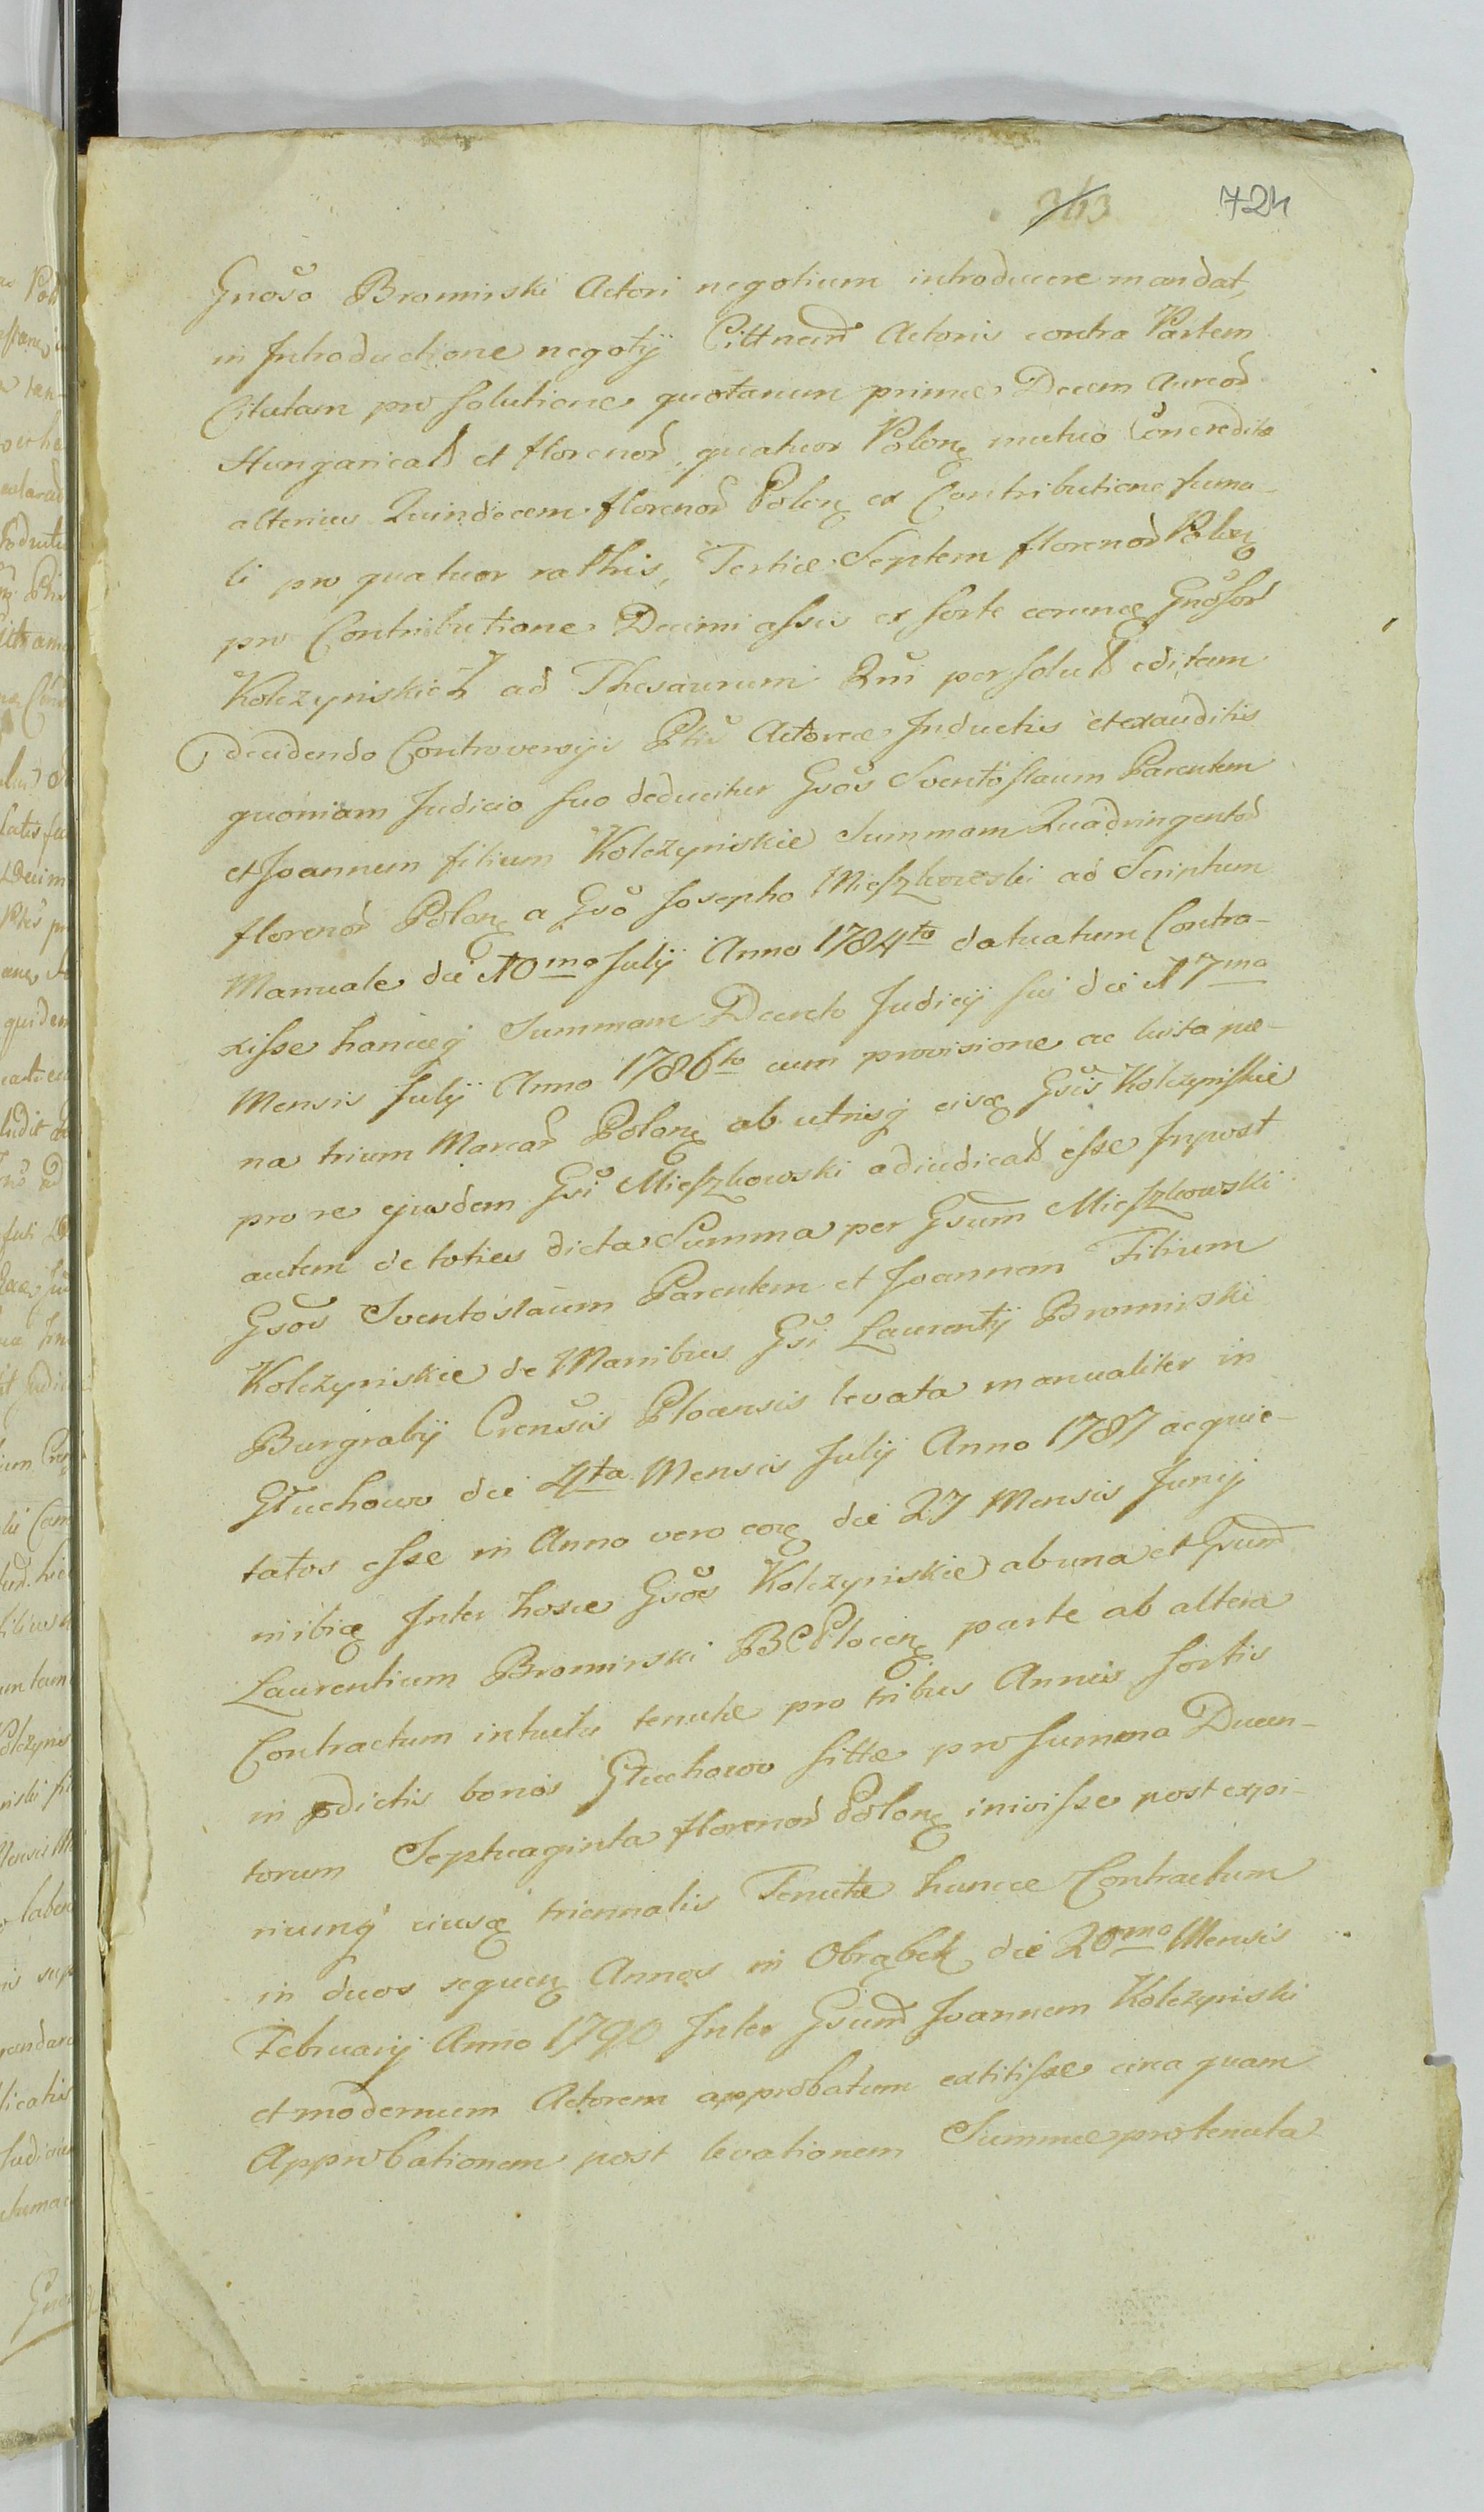 363 724
Gnõso Bromirski Actori negotium introducere mandat,
in Introductione negotij Citt Actoris contra Partem
Citatam pro solutione quotarum primæ Decem Aureor̃
Hungarical̃ et florenor̃ quatuor Polonę mutuo Concreditæ
alterius Quindecem florenor̃ Polonę ex Contributione fuma-
li pro quatuor rathis, Tertiæ Septem florenor̃ Polonę
pro Contributione Decimi assis ex sorte eorumę Gnõsor̃
Kolczyniskich ad Thesaurum persolut̃ editam
decidendo Controversijs Ptis Actoreæ Inductis et exauditis
quoniam Judicio suo deducitur Gsõs Sventoslaum Parentem
et Joannem filium Kolczyniskie Summam Quadringentor̃
florenor̃ Polonę a Gsõ Josepho Mieszkowski ad Scriptum
Manuale die 10mo Julij Anno 1784to datuatum Contra-
xisse hancęq Summam Decreto Judicij sui die 17ma
Mensis Julij Anno 1786to cum provisione ac luita pæ-
na trium Marcar̃ Polonę ab utrisq eisdę Gsis Kolczyniskie
pro re ejusdem Gsi Mieszkowski adiudicat̃ esse Inpost
autem de toties dicta Summa per Gsum Mieszkowski
Gsõs Sventoslaum Parentem et Joannem Filium
Kolczyniskie de Manibus Gsi Laurentij Bromirski
Burgrabij Crensis Plocensis levata manualiter in
Głuchowo die 4ta Mensis Julij Anno 1787 acquie-
tatos esse in Anno vero eoę die 27 Mensis Junij
inibię Inter hosce Gsõs Kolczyniskie ab una et Gsum
Laurentium Bromirski BCPlocenę parte ab altera
Contractum intuitu tenutæ pro tribus Annis sortis
in pdictis bonis Głuchowo sittæ pro summa Ducen-
torum Septuaginta florenor̃ Polonę inivisse post expi-
riumq eiusdę triennalis Tenutæ huncce Contractum
in duos sequenę Annos in Obrąbek die 20ma Mensis
Februarij Anno 1790 Inter Gsum Joannem Kolczyniski
et modernum Actorem approbatum extitisse circa quam
Approbationem post levationem Summæ pro tenuta